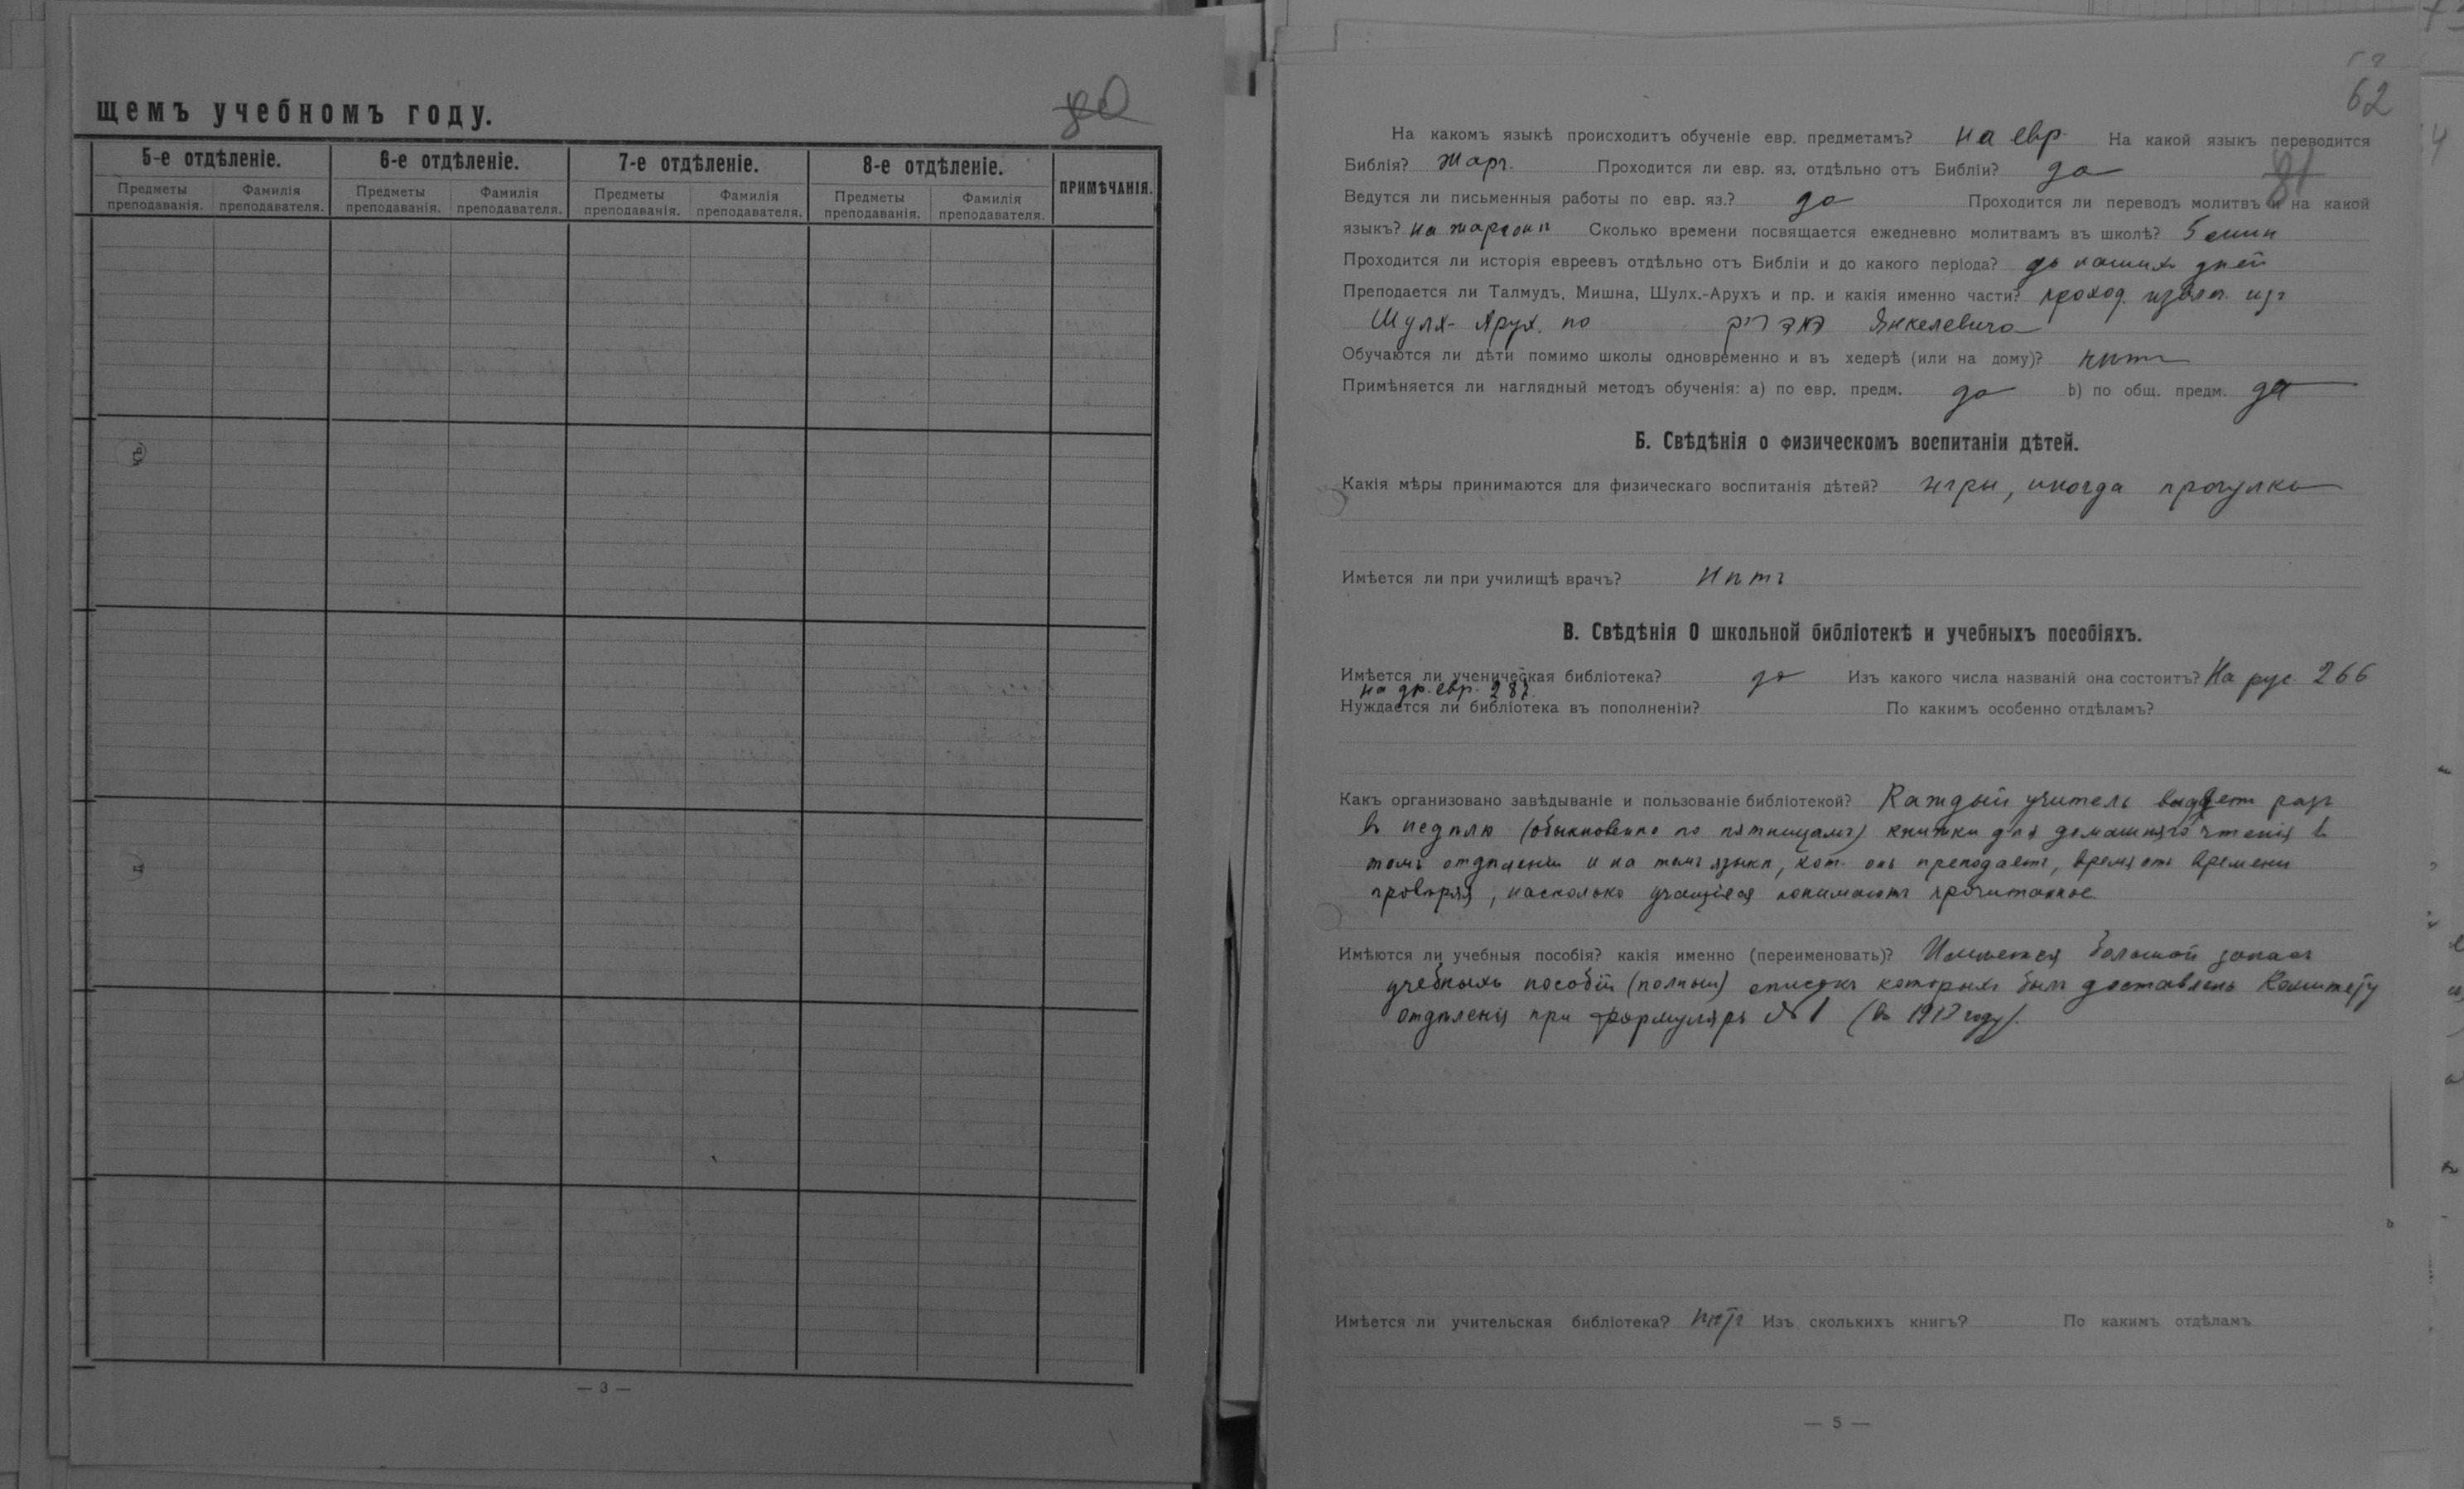 щемъ учебномъ году.
80
5-е отдѣленіе. 6-е отдѣленіе. 7-е отдѣленіе. 8-е отдѣленіе. ПРИМѢЧАНІЯ.
Предметы преподаванія. Фамилія преподавателя. Предметы преподаванія. Фамилія преподавателя. Предметы преподаванія. Фамилія преподавателя. Предметы преподаванія. Фамилія преподавателя.
— 3 —
62
81
На какомъ языкѣ происходитъ обученіе евр. предметамъ? на евр. На какой языкъ переводится
Библія? жарг. Проходится ли евр. яз. отдѣльно отъ Библіи? да
Ведутся ли письменныя работы по евр. яз.? да Проходится ли переводъ молитвъ и на какой
языкъ? на жаргонѣ Сколько времени посвящается ежедневно молитвамъ въ школѣ? 5 мин
Проходится ли исторія евреевъ отдѣльно отъ Библіи и до какого періода? до нашихъ дней
Преподается ли Талмудъ, Мишна, Шулх.-Арухъ и пр. и какія именно части? проход. извлеч. изъ
Шулх-Арух. по Янкелевича
Обучаются ли дѣти помимо школы одновременно и въ хедерѣ (или на дому)? нѣтъ
Примѣняется ли наглядный методъ обученія: а) по евр. предм. да b) по общ. предм. да
Б. Свѣдѣнія о физическомъ воспитаніи дѣтей.
Какія мѣры принимаются для физическаго воспитанія дѣтей? игры, иногда прогулки
Имѣется ли при училищѣ врачъ? Нѣтъ
В. Свѣдѣнія О школьной библіотекѣ и учебныхъ пособіяхъ.
Имѣется ли ученическая библіотека? да Изъ какого числа названій она состоитъ? На рус 266
на др. евр. 287.
Нуждается ли библіотека въ пополненіи? По какимъ особенно отдѣламъ?
Какъ организовано завѣдываніе и пользованіе библіотекой? Каждый учитель выдает разъ
въ недѣлю (обыкновенно по пятницамъ) книжки для домашняго чтенія въ
томъ отдѣленіи и на томъ языкѣ, кот. онъ преподаетъ, время отъ времени
провѣряя, насколько учащіеся понимаютъ прочитанное.
Имѣются ли учебныя пособія? какія именно (переименовать)? Имѣется большой запасъ
учебныхъ пособій (полный) списокъ которыхъ былъ доставленъ Комитету
отдѣленія при формулярѣ №1 (въ 1912 году).
Имѣется ли учительская библіотека? нѣтъ Изъ сколькихъ книгъ? По какимъ отдѣламъ
— 5 —